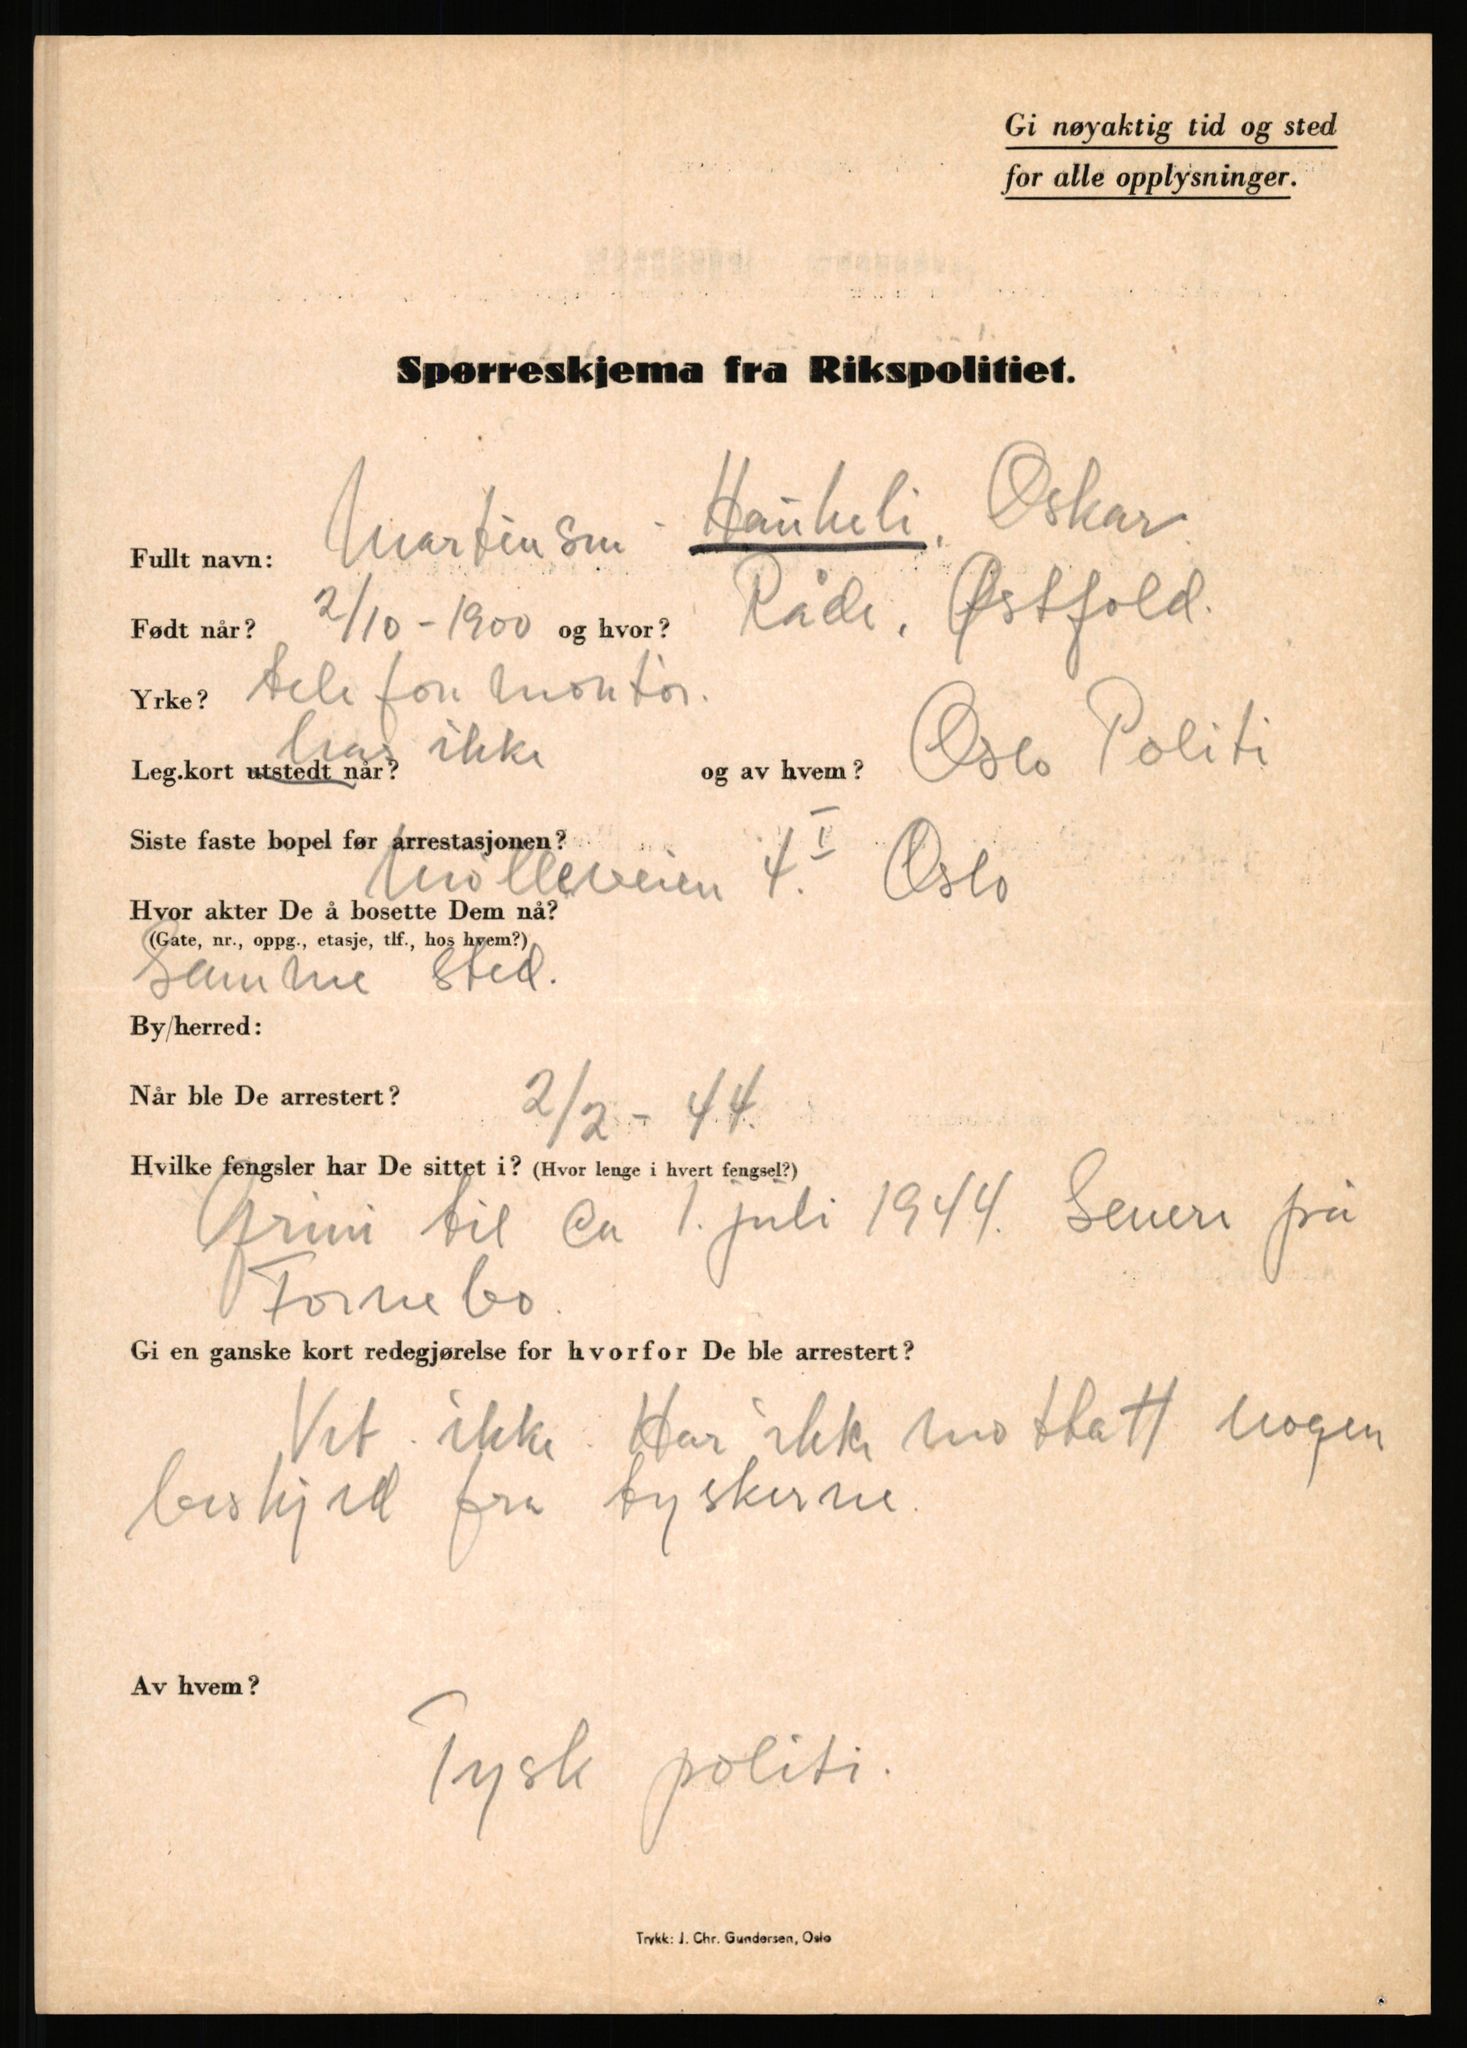 Gi nøyaktig tid og sted
for alle opplysninger.
Spørreskjema fra Rikspolitiet.
Fullt navn: Martinsen - Hauheli, Oskar.
Født når? 2/10 - 1900 og hvor? Råde, Østfold.
Yrke? telefonmontør.
Leg.kort utstedt når? har ikke og av hvem? Oslo Politi
Siste faste bopel før arrestasjonen?
Mølleveien 4. I Oslo
Hvor akter De å bosette Dem nå?
(Gate, nr., oppg., etasje, tlf., hos hvem?)
Samme sted.
By/herred:
Når ble De arrestert? 2/2 - 44.
Hvilke fengsler har De sittet i? (Hvor lenge i hvert fengsel?)
Grini til ca 1. juli 1944. Senere på
Fornebo.
Gi en ganske kort redegjørelse for hvorfor De ble arrestert?
Vet ikke. Har ikke mottatt nogen
beskjed fra tyskerne.
Av hvem?
Tysk politi.
Trykk: J. Chr. Gundersen, Oslo